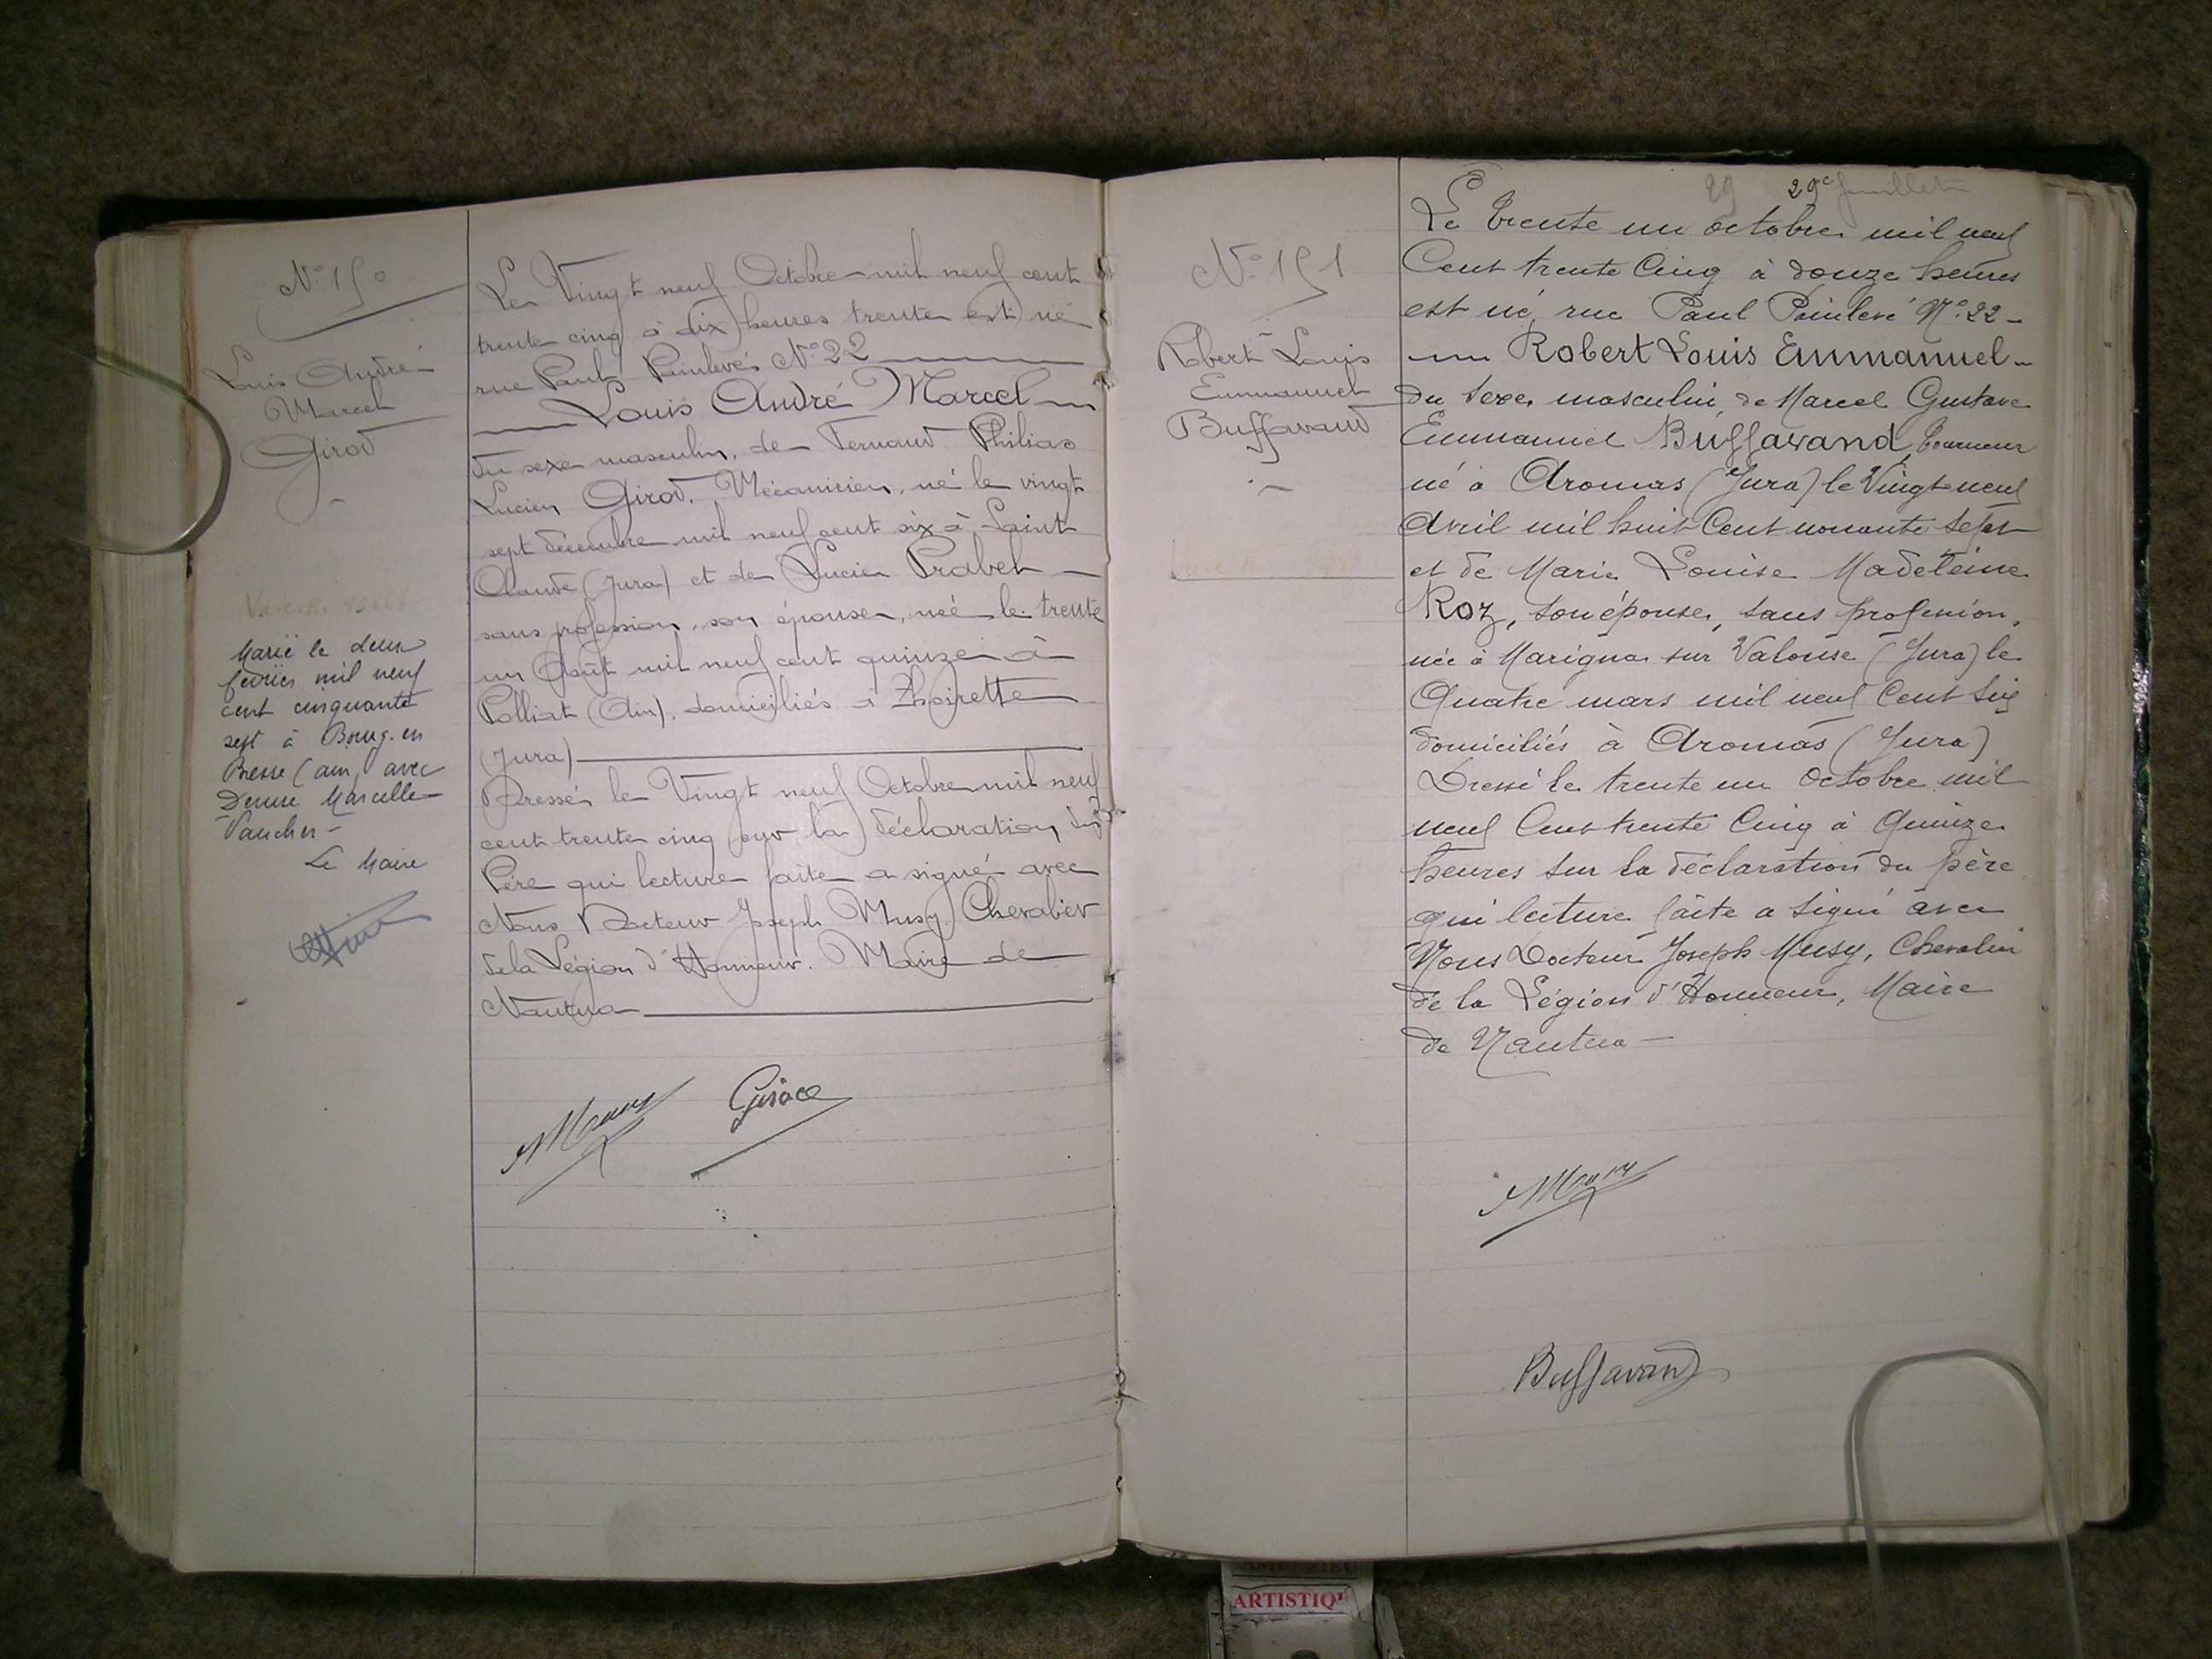 N° 150
Louis André
Marcel
Girod
Marié le deux
février mil neuf
cent cinquante
sept à Bourg-en
Bresse (ain) avec
Denise Marcelle
Vaucher -
Le Maire
Le Vingt neuf Octobre mil neuf cent
trente cinq à dix heures trente est né
rue Paul Painlevé N° 22
Louis André Marcel
du sexe masculin, de Fernand Philias
Lucien Girod, Mécanicien, né le vingt
sept décembre mil neuf cent six à Saint
Claude (Jura) et de Lucie Prabel
sans profession, son épouse, née le trente
un Août mil neuf cent quinze à
Polliat (Ain), domiciliés à Thoirette
(Jura)
Dressé le Vingt neuf Octobre mil neuf
cent trente cinq sur la déclaration du
Père qui lecture faite a signé avec
Nous Docteur Joseph Musy, Chevalier
de la Légion d'Honneur. Maire de
Nantua
Musy
N° 151
Robert Louis
Emmanuel
Buffavand
29 29e feuillet
Le trente un octobre mil neuf
Cent trente Cinq à douze heures
est né, rue Paul Painlevé N° 22 -
Robert Louis Emmanuel
du sexe masculin, de Marcel Gustave
Emmanuel Buffavand, tourneur
né à Aromas (Jura) le Vingt neuf
Avril mil huit Cent nonante sept
et de Marie Louise Madeleine
Roz, son épouse, sans profession,
née à Marigna sur Valouse (Jura) le
Quatre mars mil neuf Cent six
domiciliés à Aromas (Jura)
Dressé le trente un Octobre mil
neuf Cent trente Cinq à Quinze
heures sur la déclaration du père
qui lecture faite a signé avec
Nous Docteur Joseph Musy, Chevalier
de la Légion d'Honneur, Maire
de Nantua -
Musy
Buffavand
ARTISTIQ